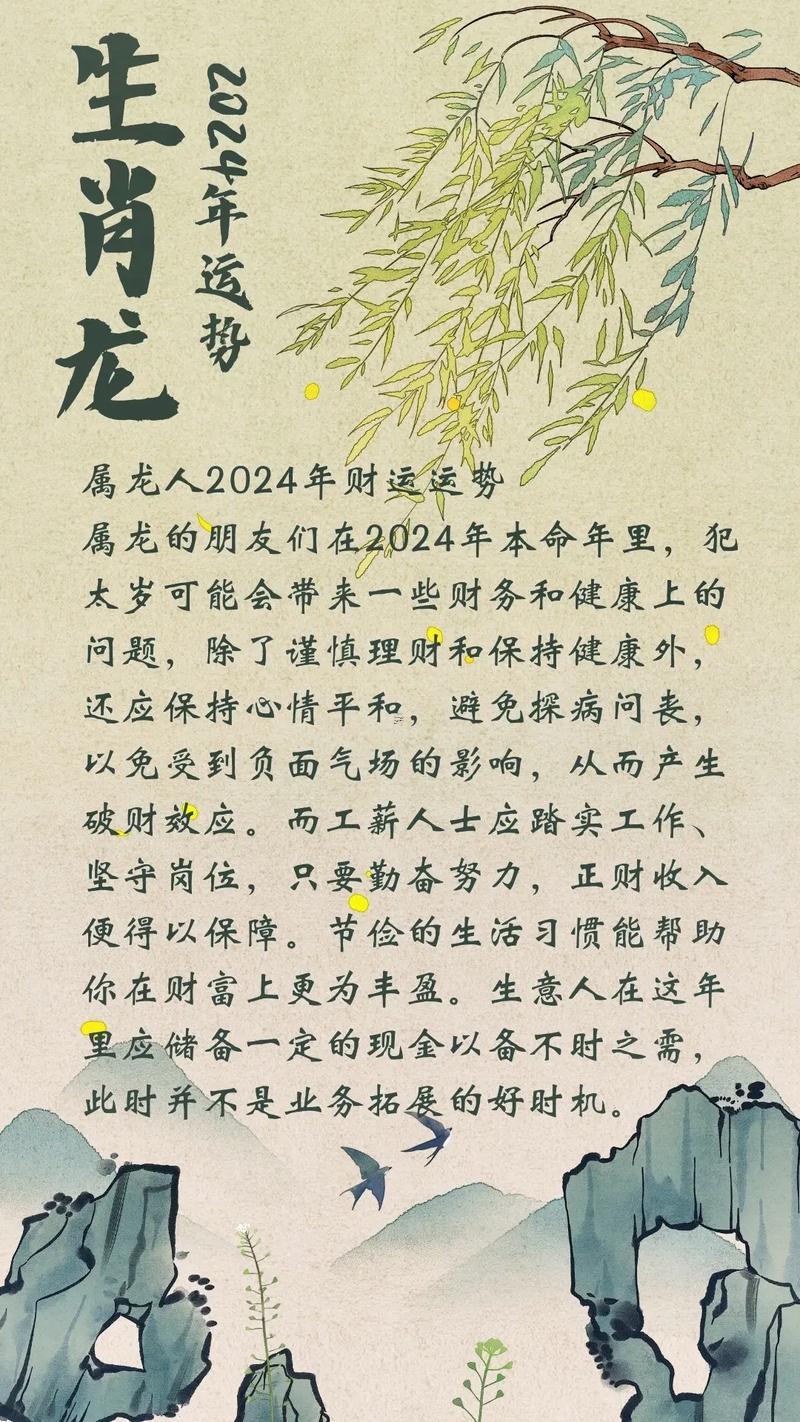 生肖龙
2024年运势
属龙人2024年财运运势
属龙的朋友们在2024年本命年里，犯
太岁可能会带来一些财务和健康上的
问题，除了谨慎理财和保持健康外，
还应保持心情平和，避免探病问丧，
以免受到负面气场的影响，从而产生
破财效应。而工薪人士应踏实工作、
坚守岗位，只要勤奋努力，正财收入
便得以保障。节俭的生活习惯能帮助
你在财富上更为丰盈。生意人在这年
里应储备一定的现金以备不时之需，
此时并不是业务拓展的好时机。